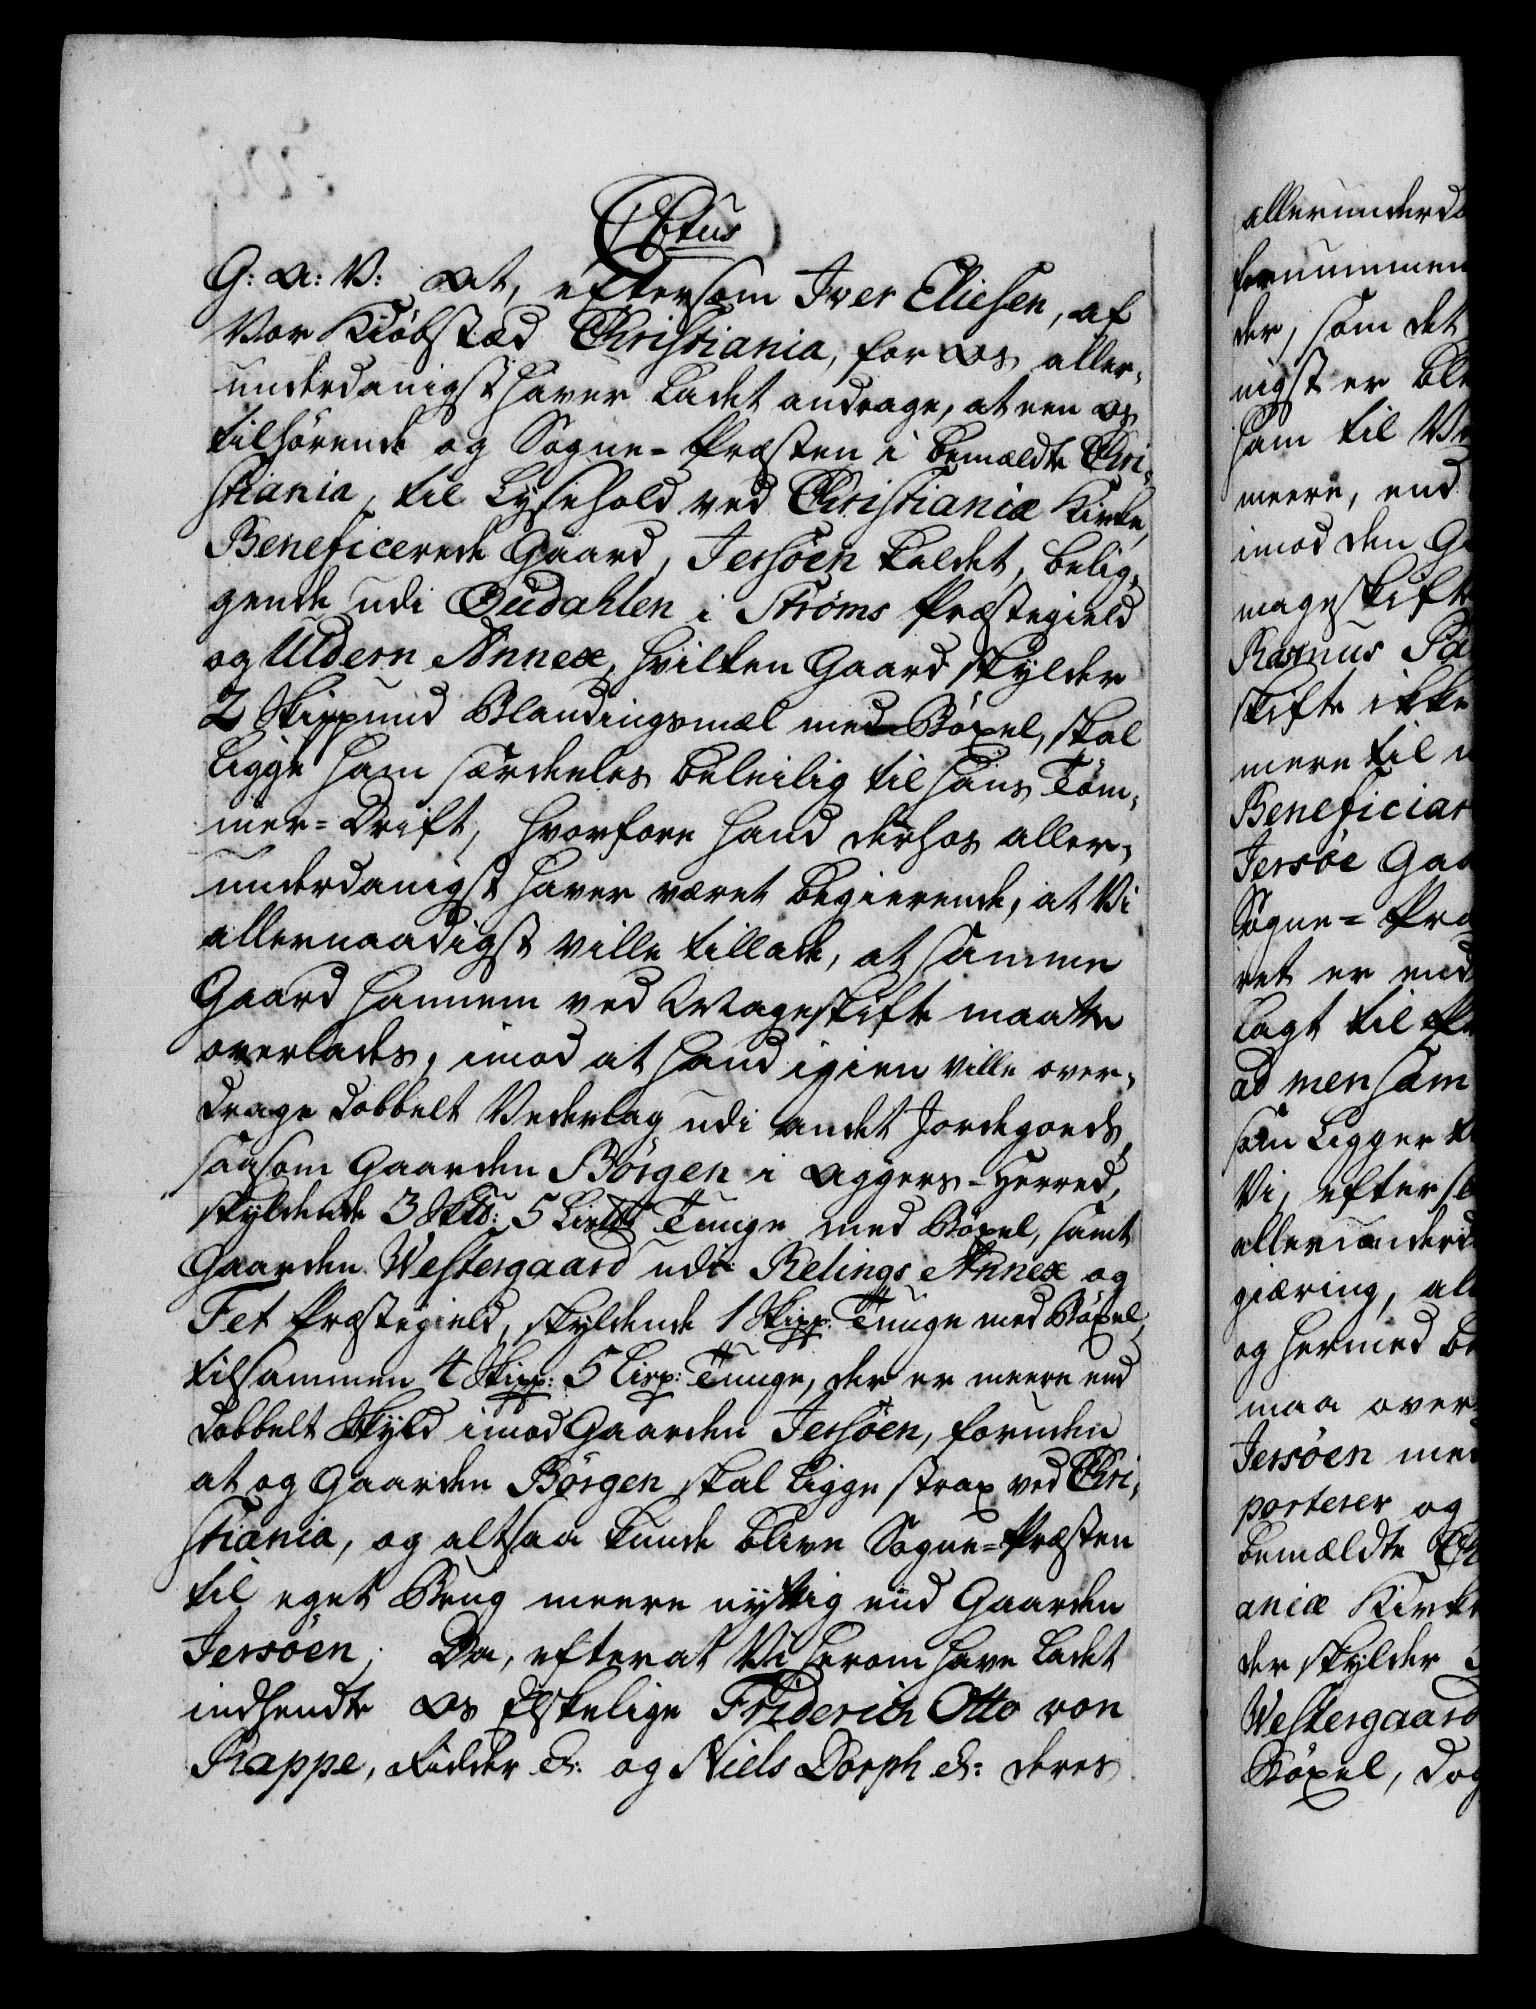 C6tus
G: A: V: At, eftersom Iver Eliesen, af
Vor Kiöbstæd Christiania, for Os aller-
underdanigst haver ladet andrage, at een Os
tilhörende og Sogne-Præsten i bemældte Chri-
stiania, til Lysehold ved Christianiæ Kirke,
Beneficerede Gaard, Jersöen kaldet, belig-
gende udi Oudahlen i Strøms Præstegield
og Uldern Annex, hvilken Gaard skylder
2 Skippund Blandingsmæl med Böxel, skal
ligge ham særdeeles beleilig til hans Töm-
mer-Drift, hvorfore hand derhos aller-
underdanigst haver været begierende, at Vi
allernaadigst ville tillade, at samme
Gaard hannem ved Mageskifte maatte
overlades, imod at hand igien ville over-
drage dobbelt Vederlag udi andet Jordegoeds,
saasom Gaarden Börgen i Aggers-Herred,
skyldende 3 Sk℔: 5 Lis℔ Tunge med Böxel, samt
Gaarden Westergaard udi Relings Annex og
Fet Præstegield, skyldende 1 Skipp: Tunge med Böxel,
tilsammen 4 Skipp: 5 Lisp: Tunge, der er meere end
dobbelt Skyld imod Gaarden Jersöen, foruden
at og Gaarden Börgen skal ligge strax ved Chri-
stiania, og altsaa kunde blive Sogne-Præsten
til eget Brug meere nyttig end Gaarden
Jersöen; Da, efterat Vi herom have ladet
indhendte Os Elskelige Friderich Otto von
Rappe, Ridder &: og Niels Dorph &: deres
allerunderda
fornummen
der, som det
nigst er ble
ham til
meere, end
imod den G
mageskift
Rasmus
skifte ikke
mere til
Beneficiar
Jersöe Gaa
Sogne-Præ
ret er
lagt til
ad mensam
som ligger
Vi, efter
allerunderd
giæring, all
og hermed be
maa over
Jersöen med
porterer og
bemældte Ch
aniæ Kirke
der skylder 3
Westergaard
Böxel, dog